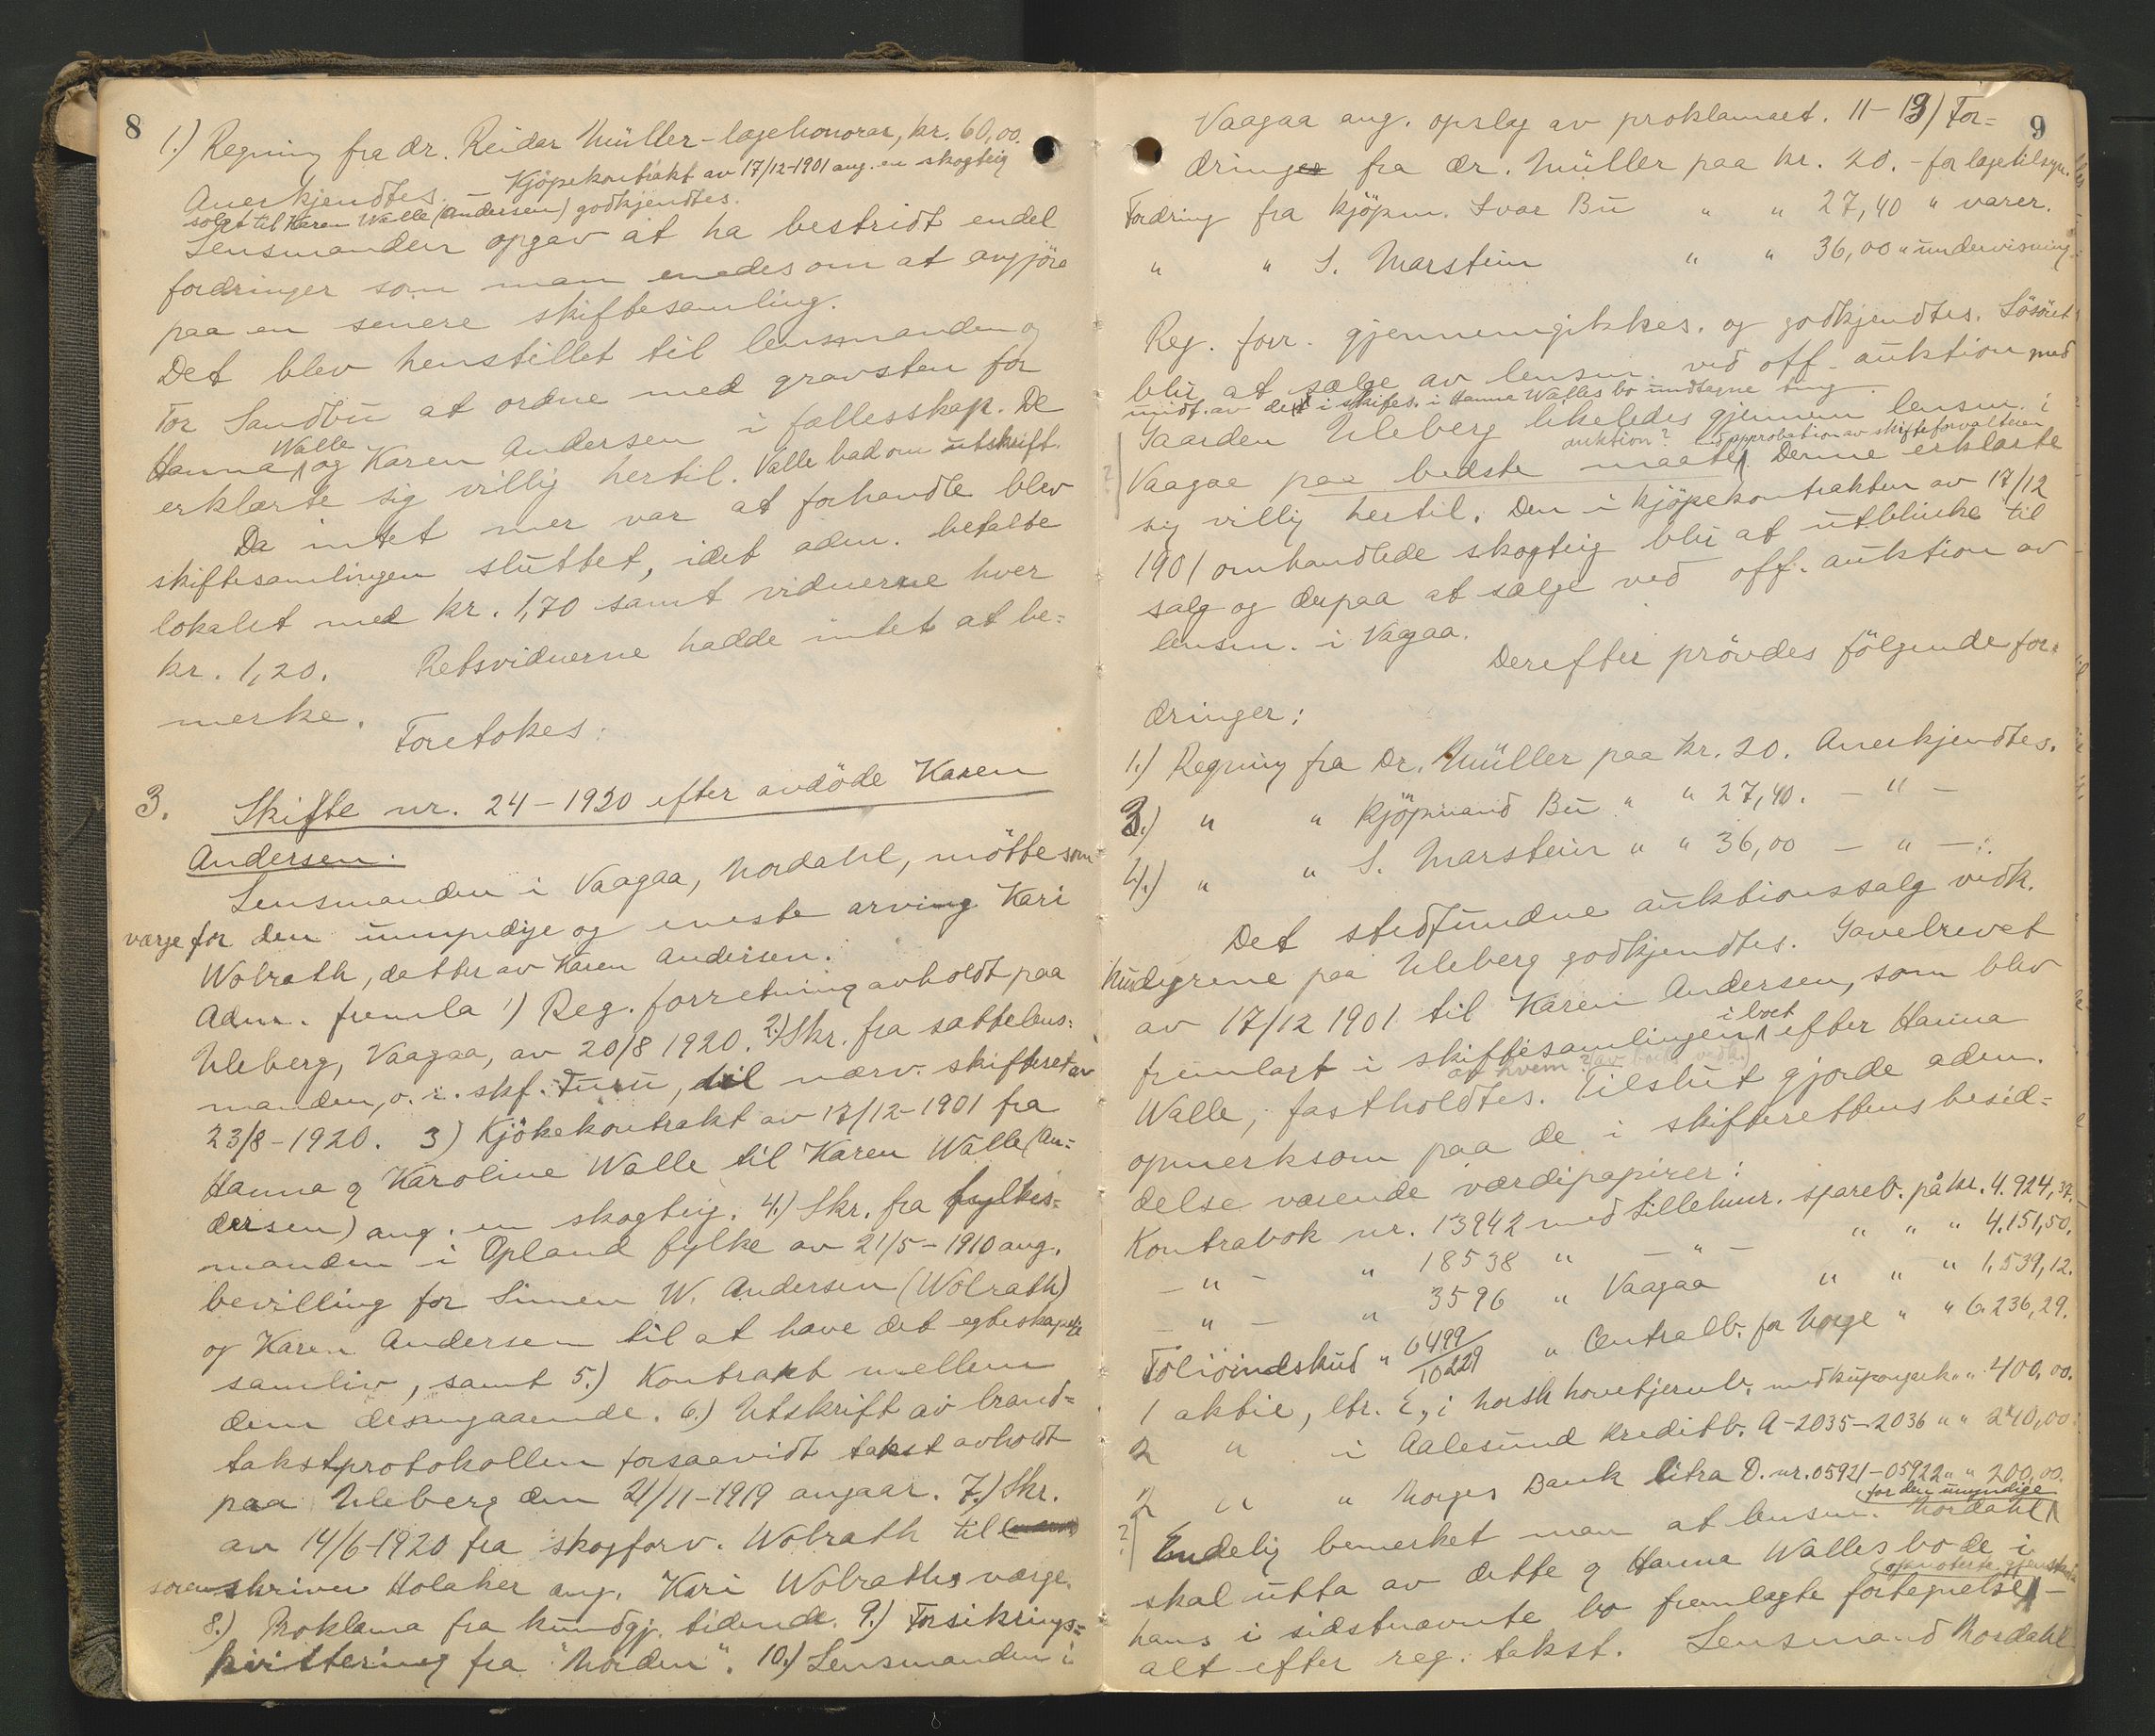 8
1.) Regning fra dr. Reidar Müller - lægehonorar, kr. 60,00.
Anerkjendtes. - Kjöpekontrakt av 17/12-1901 ang. en skogteig
solgt til Karen Walle (Andersen) godkjendtes.
Lensmanden opgav at ha bestridt endel
fordringer som man enedes om at avgjöre
paa en senere skiftesamling.
Det blev henstillet til lensmanden og
Tor Sandbu at ordne med gravsten for
Hanna Walle og Karen Andersen i fællesskap. De
erklærte sig villig hertil. Valle bad om utskrift.
Da intet mer var at forhandle blev
skiftesamlingen sluttet, idet adm. betalte
lokalet med kr. 1,70 samt vidnerne hver
kr. 1,20. Retsvidnerne hadde intet at be=
merke.
Foretokes:
3. Skifte nr. 24-1920 efter avdöde Karen
Andersen.
Lensmanden i Vaagaa, Nordahl, mötte som
værge for den umyndige og eneste arving Kari
Wolrath, datter av Karen Andersen.
Adm. fremla 1) Reg. forretning avholdt paa
Uleberg, Vaagaa, av 20/8 1920. 2.) Skr. fra sættelens=
manden, o.r.skf. Furu, til nærv. skifteret av
23/8-1920. 3) Kjökekontrakt av 17/12-1901 fra
Hanna og Karoline Walle til Karen Walle (An=
dersen) ang. en skogteig. 4.) Skr. fra fylkes=
manden i Opland fylke av 21/5-1910 ang.
bevilling for Simen W. Andersen (Wolrath)
og Karen Andersen til at hæve det egteskapelige
samliv, samt 5.) Kontrakt mellem
dem desangaaende. 6.) Utskrift av brand=
takstprotokollen forsaavidt takst avholdt
paa Uleberg den 21/11-1919 angaar. 7.) Skr.
av 14/6-1920 fra skogforv. Wolrath til
sorenskriver Holaker ang. Kari Wolraths værge.
8.) Proklama fra kundgj. tidende. 9.) Forsikrings=
kvittering fra "Norden". 10.) Lensmanden i
9
Vaagaa ang. opslag av proklamaet. 11-13) For=
dringer fra dr. Müller paa kr. 20.- for lægetilsyn.
Fordring fra kjöpm. Ivar Bu " " 27,40 " varer.
" " S. Marstein " " 36,00 " undervisning.
Reg. forr. gjennemgikkes og godkjendtes. Lösöret
blir at sælge av lensm. ved off. auktion med
undt. av de i skifes. i Hanna Walles bo undtagne ting.
Gaarden Uleberg likeledes gjennem lensm. i
auktion? approbation av skifteforvalteren
? Vaagaa paa bedste maate. Denne erklærte
sig villig hertil. Den i kjöpekontrakten av 17/12
1901 omhandlede skogteig blir at utblinke til
salg og derpaa at sælge ved off. auktion av
lensm. i Vaagaa.
Derefter prövdes fölgende for=
dringer:
1.) Regning fra Dr. Müller paa kr. 20. Anerkjendtes.
3.) " " Kjöpmand Bu " " 27,40. - " -
4.) " " S. Marstein " " 36,00 - " -.
Det stedfundne auktionssalg vedk.
husdyrene paa Uleberg godkjendtes. Gavebrevet
av 17/12 1901 til Karen Andersen, som blev
fremlagt i skiftesamlingen i boet efter Hanna
av hvem?
Walle, fastholdtes. Tilslut gjorde adm.
opmerksom paa de i skifterettens besid=
delse værende værdipapirer:
Kontrabok nr. 13942 med Lillehmr. spareb. på kr. 4.924,37.
- " - " 18538 " - " - " " " 4.151,50.
- " - " 3596 " Vaagaa " " " 1.539,12.
Folioindskud " 6499/10229 " Centralb. for Norge " " 6.236,29.
1 aktie, ltr. E, i norsk hovetjernb. med kupongark " " 400,00.
2 " i Aalesund kreditb. A-2035-2036 " " 240,00.
2 " " Norges Bank litra D. nr. 05921-05922 " " 200,00.
for den umyndige
? Endelig bemerket man at lensm. Nordahl
skal utta av dette og Hanna Walles bo de i
hans i sidstnævnte bo fremlagte fortegnelse -
alt efter reg. takst. Lensmand Nordahl